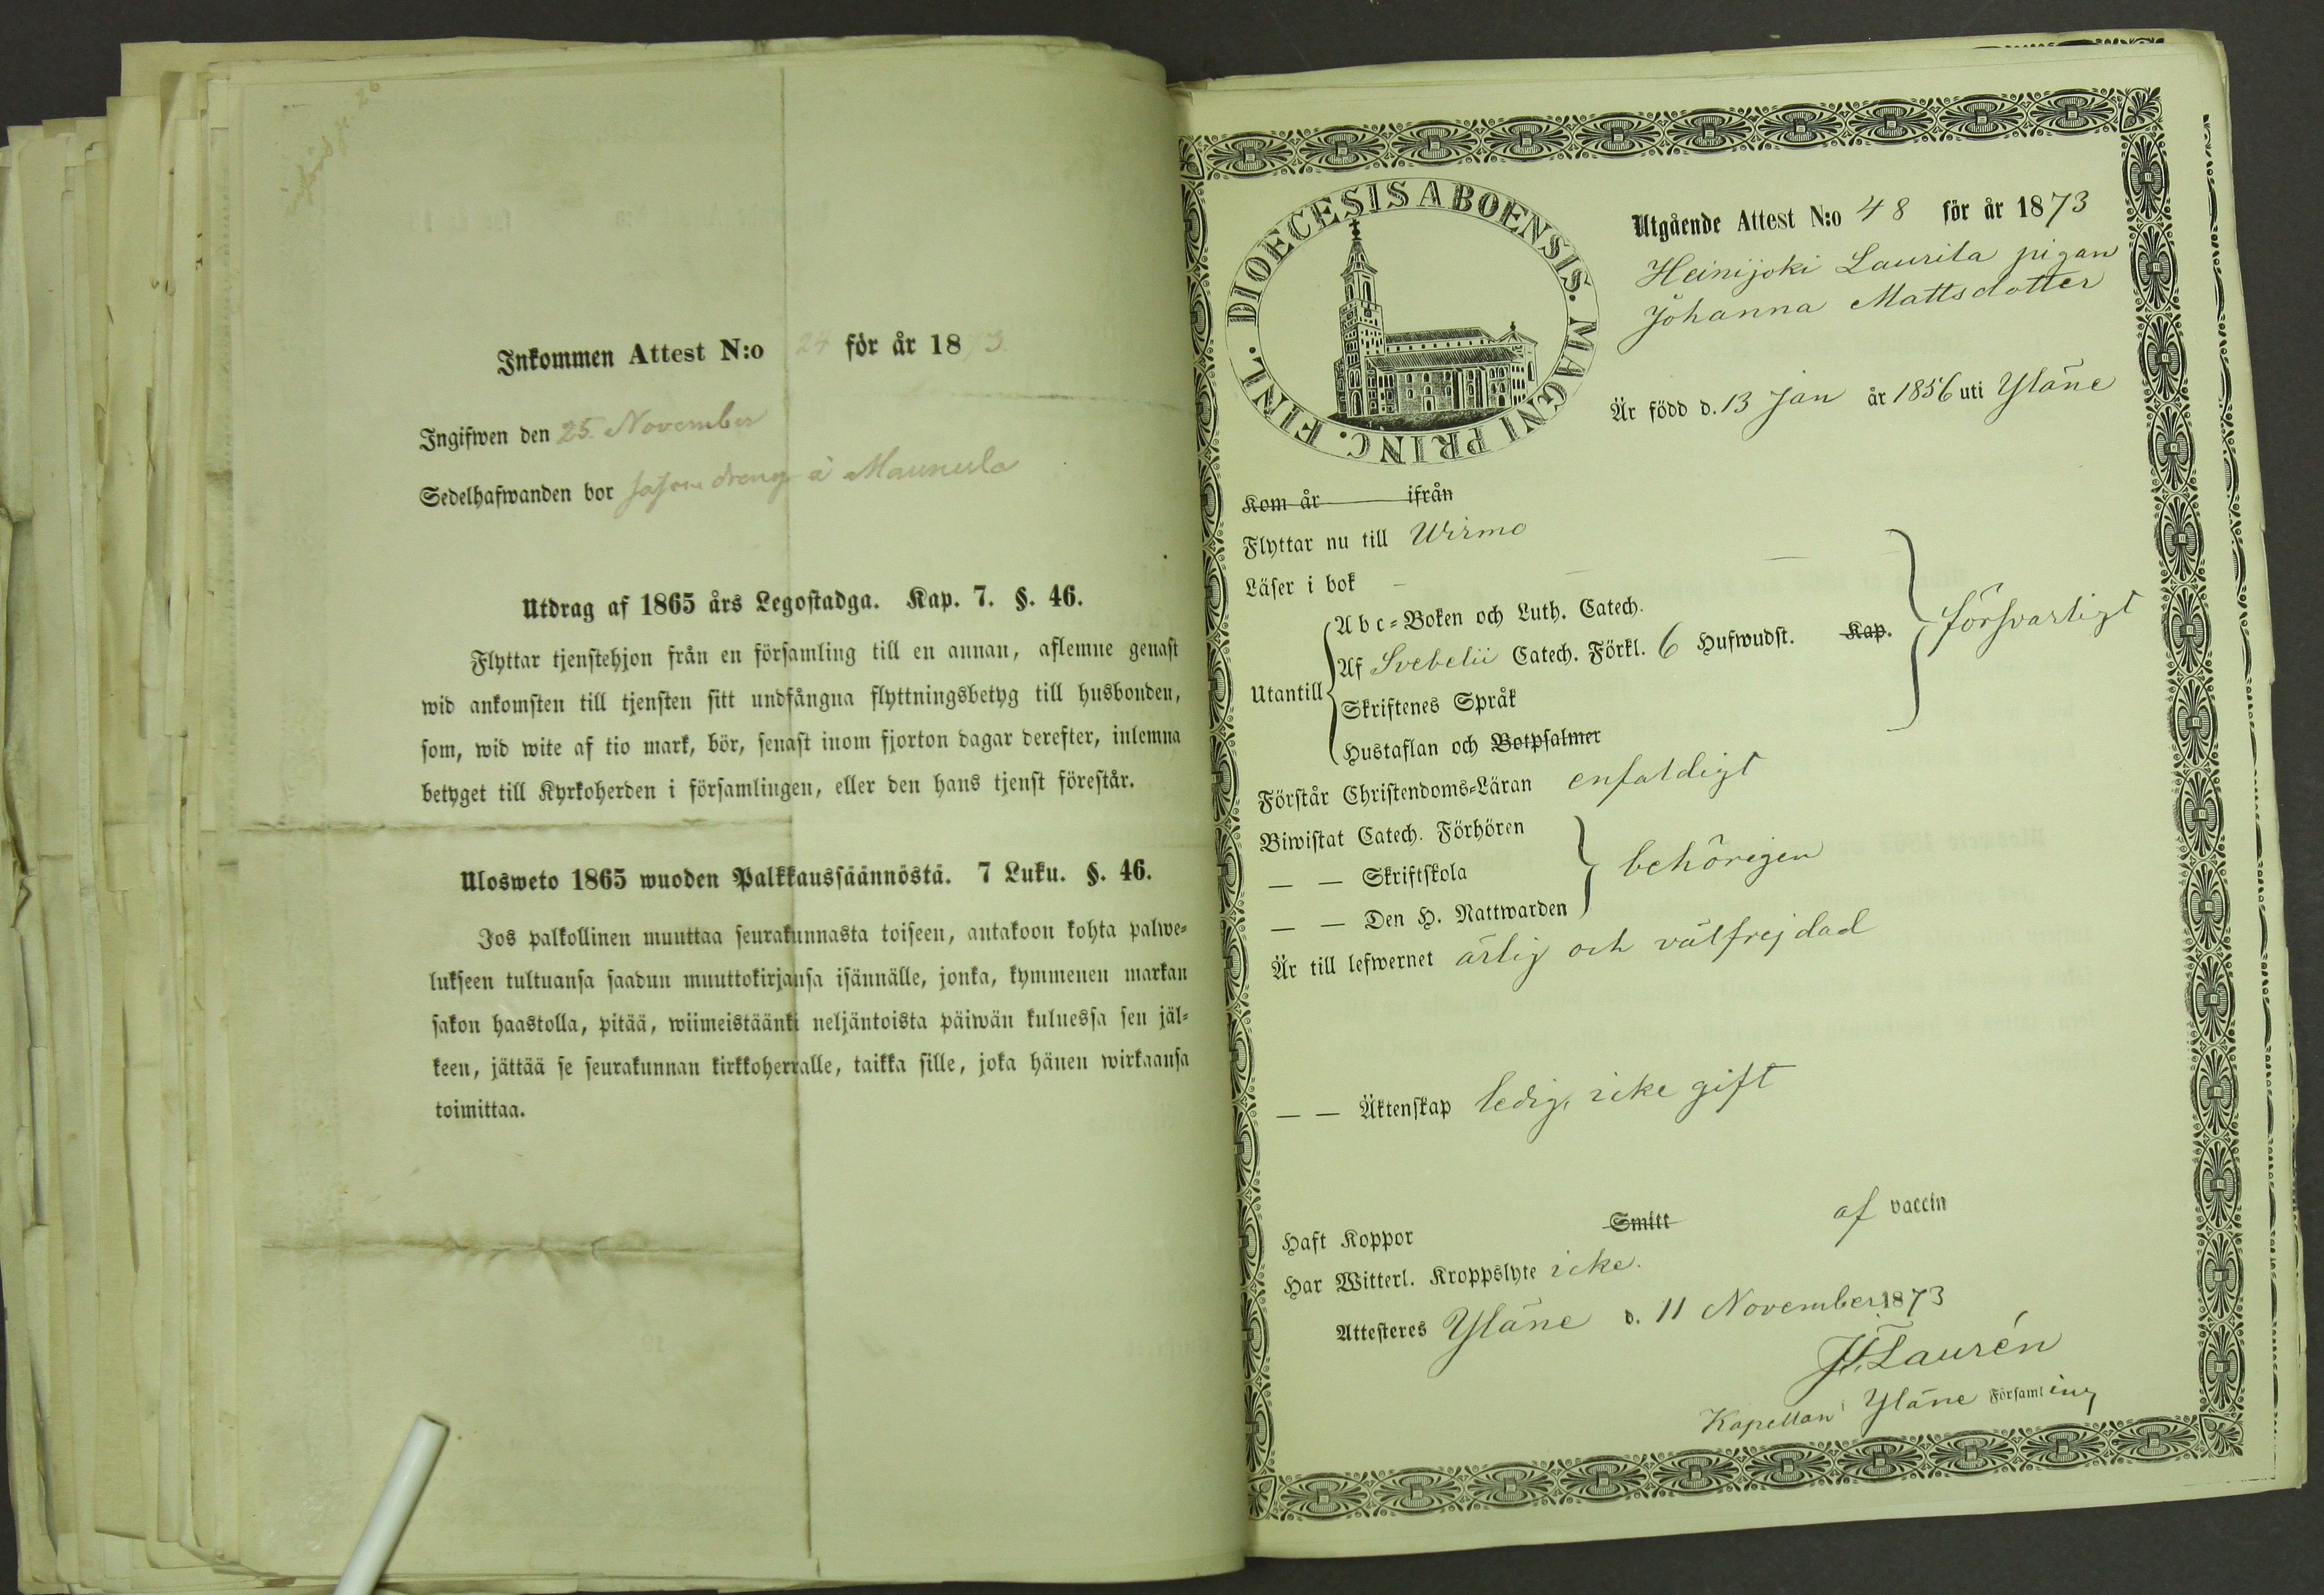 Inkommen Attest N:o 24 för år 1873.
Ingifwen den 25. November
Sedelhafwanden bor såsom dreng å Maunula
Utdrag af 1865 års Legostadga. Kap. 7. §. 46.
Flyttar tjenstehjon från en församling till en annan, aflemne genast
wid ankomsten till tjensten sitt undfångna flyttningsbetyg till husbonden,
som, wid wite af tio mark, bör, senast inom fjorton dagar derefter, inlemna
betyget till Kyrkoherden i församlingen, eller den hans tjenst förestår.
Ulosweto 1865 wuoden Palkkaussäännöstä. 7 Luku. §. 46.
Jos palkollinen muuttaa seurakunnasta toiseen, antakoon kohta palwe-
lukseen tultuansa saadun muuttokirjansa isännälle, jonka, kymmenen markan
sakon haastolla, pitää, wiimeistäänki neljäntoista päiwän kuluessa sen jäl-
keen, jättää se seurakunnan kirkkoherralle, taikka sille, joka hänen wirkaansa
toimittaa.
DIOECESIS ABOENSIS. MAGNI PRINC. FINL.
Utgående Attest N:o 48 för år 1873
Heinijoki Laurila pigan
Johanna Mattsdotter
Är född d. 13 Jan år 1856 uti Yläne
Kom år ifrån
Flyttar nu till Wirmo
Läser i bok
Utantill
Abc-Boken och Luth. Catech.
Af Svebelii Catech. Förkl. 6 Hufwudst. Kap.
försvarligt
Skriftenes Språk
Hustaflan och Botpsalmer
Förstår Christendoms-Läran enfaldigt
Biwistat Catech. Förhören
— — Skriftskola
behörigen
— — Den H. Nattwarden
Är till lefwernet ärlig och välfrejdad
— — Äktenskap ledig, icke gift
Haft Koppor Smitt af vaccin
Har Witterl. Kroppslyte icke.
Attesteres Yläne d. 11 November 1873
Laurén
Kapellan i Yläne Församling